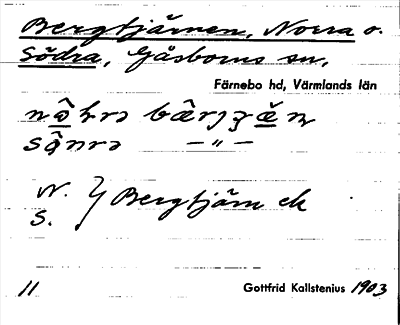 Bergtjärnen, Norra o.
Södra, Gåsborns sn.
Färnebo hd, Värmlands län
— " —
N. } Bergtjärn ek
S.
11
Gottfrid Kallstenius 1903